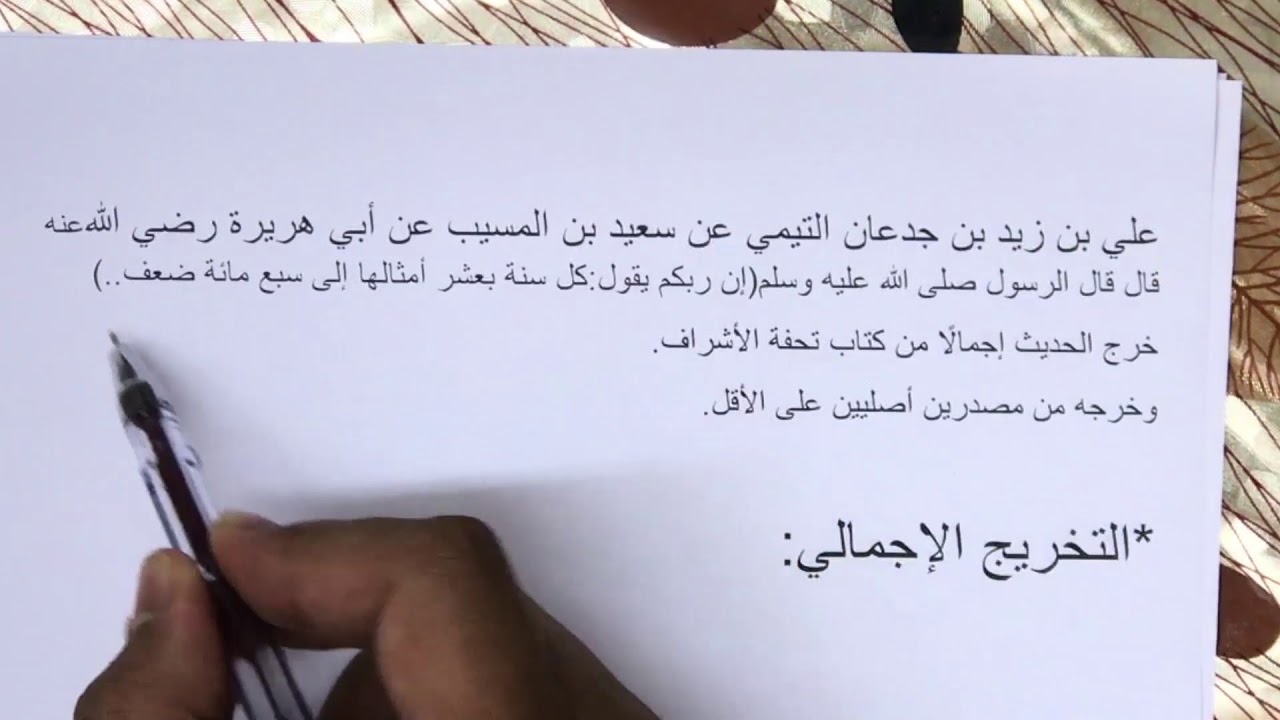 علي بن زيد بن جدعان التيمي عن سعيد بن المسيب عن أبي هريرة رضي الله عنه
قال قال الرسول صلى الله عليه وسلم(إن ربكم يقول:كل سنة بعشر أمثالها إلى سبع مائة ضعف..)
خرج الحديث إجمالًا من كتاب تحفة الأشراف.
وخرجه من مصدرين أصليين على الأقل.
*التخريج الإجمالي: